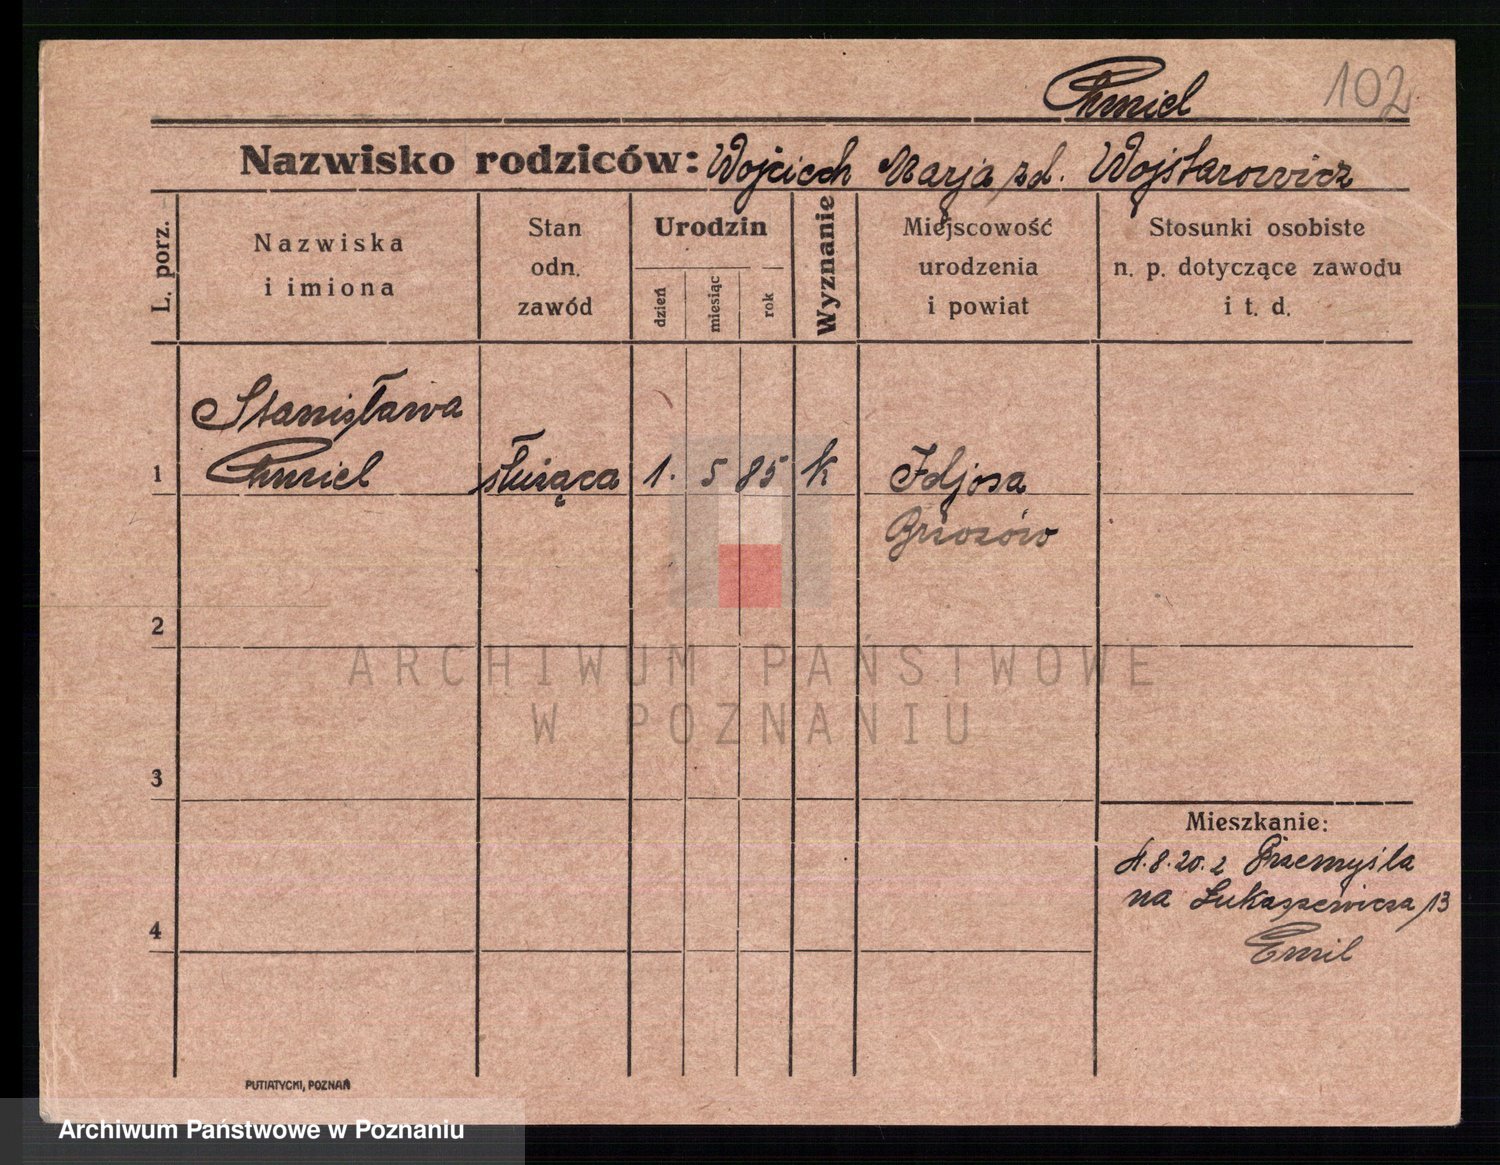 Chmiel 102
Nazwisko rodziców: Wojciech Marja zd. Wojtarowicz
L. porz.
Nazwiska
i imiona
Stan
odn.
zawód
Urodzin
dzień
miesiąc
rok
Wyznanie
Miejscowość
urodzenia
i powiat
Stosunki osobiste
n. p. dotyczące zawodu
i t. d.
Stanisława
1 Chmiel służąca 1. 5 85 k
Brzozów
2
ARCHIWUM PAŃSTWOWE
W POZNANIU
3
Mieszkanie:
4.8.20. z Przemyśla
na Łukaszewicza 13
4
Emil
PUTIATYCKI, POZNAŃ
Archiwum Państwowe w Poznaniu